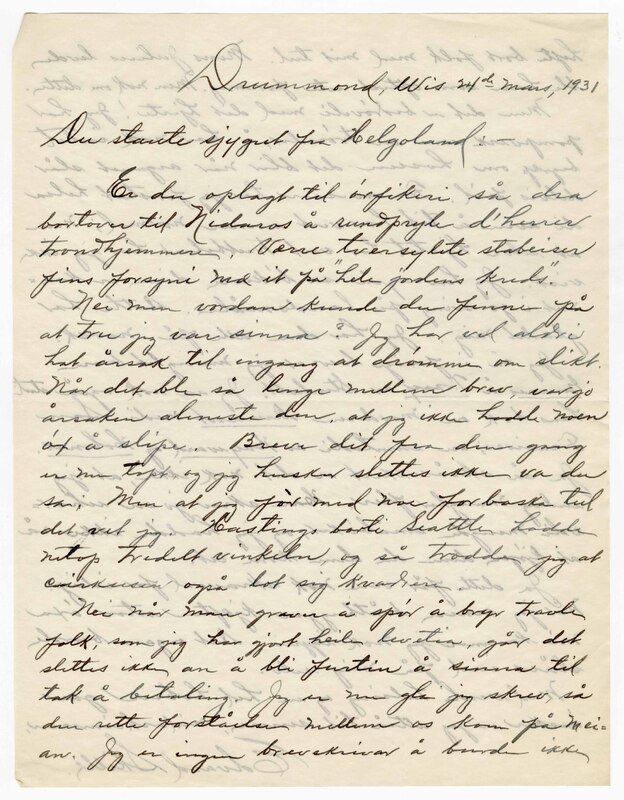 Drummond, Wis 24de mars, 1931
Du staute sjygut fra Helgoland. —
Er du oplagt til örfikeri så dra
bortover til Nidaros å rundpryle d'herrer
trondhjemmere. Værre tversylete stabeiser
fins forsyni mæ it på "hele jordens kreds".
Nei men vordan kunde du finne på
at tru jeg var sinna? Jeg har vel aldri
hat årsak til engang at drømme om slikt.
Når det ble så lenge mellem brev, var jo
årsaken aleneste den, at jeg ikke hadde noen
ox å slipe. Breve dit fra den gang
er nu tapt og jeg husker slettes ikke va du
sa. Men at jeg för med noe forbaska tul
det vet jeg. Hastings borti Seattle hadde
netop tredelt vinkeln, og så trodde jeg at
cirkusen også lot sig kvadrere.
Nei når man graver å spör å bryr travle
folk, som jeg har gjort heile levetia, går det
slettes ikke an å bli furtin å sinna til
tak å betaling. Jeg er nu gla jeg skrev, så
den rette forståelse mellem os kom på mei-
an. Jeg er ingen brevskrivar å burde ikke